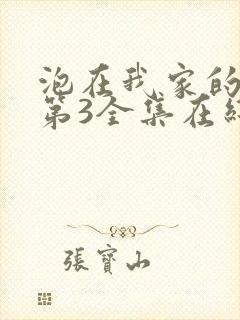 泡在我家的
第3全集在
張寶山